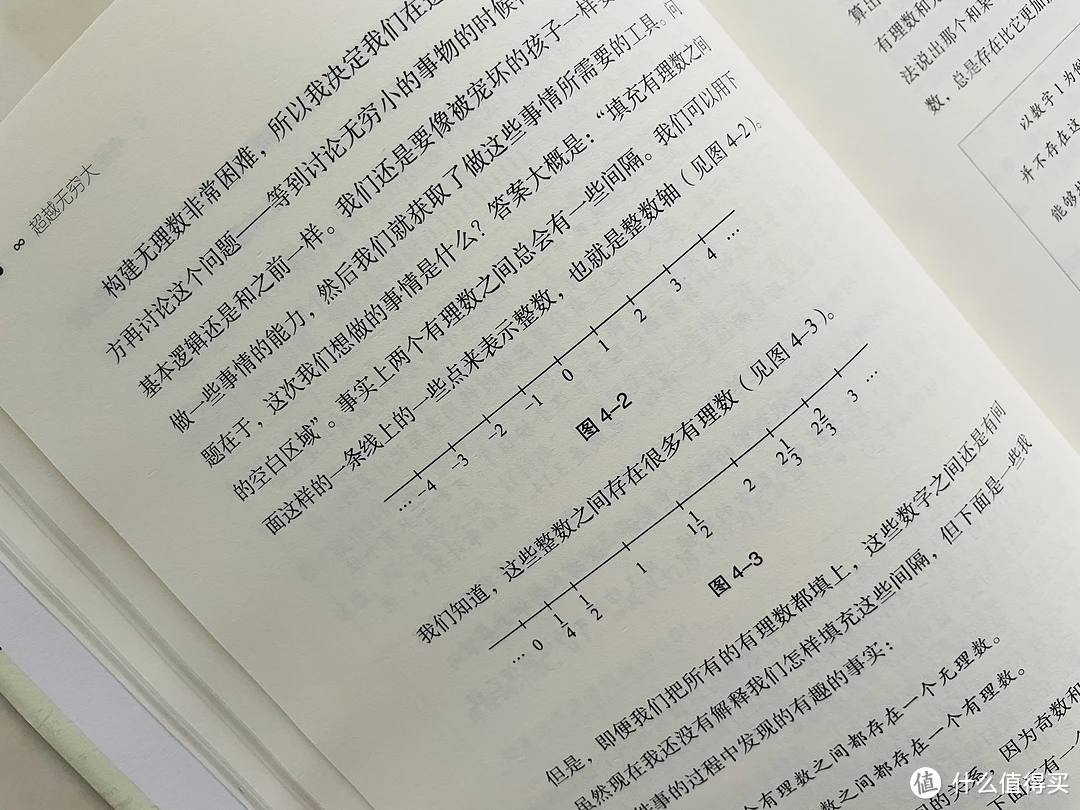 ∞ 超越无穷大
构建无理数非常困难，所以我决定我们在这
方再讨论这个问题——等到讨论无穷小的事物的时候
基本逻辑还是和之前一样。我们还是要像被宠坏的孩子一样要
做一些事情的能力，然后我们就获取了做这些事情所需要的工具。问
题在于，这次我们想做的事情是什么？答案大概是：“填充有理数之间
的空白区域”。事实上两个有理数之间总会有一些间隔。我们可以用下
面这样的一条线上的一些点来表示整数，也就是整数轴（见图 4-2）。
… -4 -3 -2 -1 0 1 2 3 4 …
图 4-2
我们知道，这些整数之间存在很多有理数（见图 4-3）。
… 0 1/4 1/2 1 1 1/2 2 2 1/3 2 2/3 3 …
图 4-3
但是，即便我们把所有的有理数都填上，这些数字之间还是有间
虽然现在我还没有解释我们怎样填充这些间隔，但下面是一些我
件事的过程中发现的有趣的事实：
有理数之间都存在一个无理数。
数之间都存在一个有理数。
的关系，因为奇数和
有一个
算出
有理数和无
法说出那个和某
数，总是存在比它更加
以数字 1 为例
并不存在这
能够
值 什么值得买